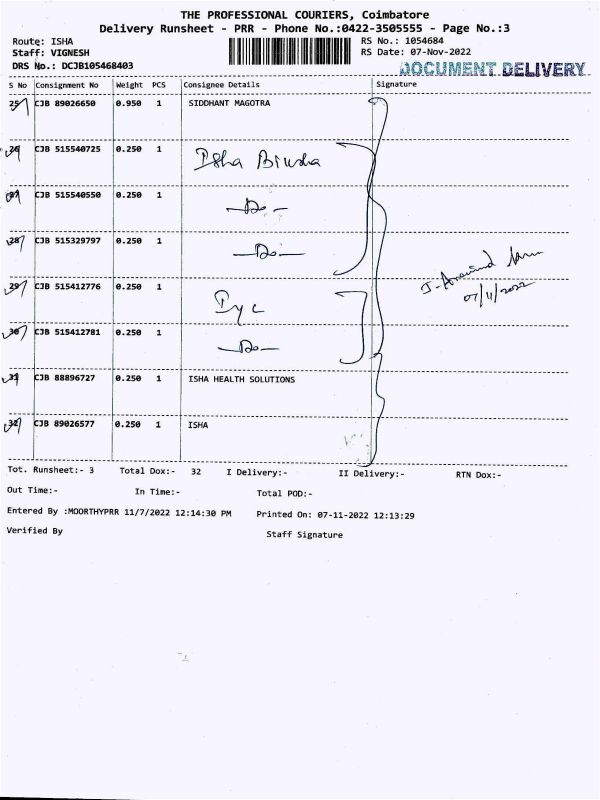 THE PROFESSIONAL COURIERS, Coimbatore
Delivery Runsheet - PRR - Phone No.:0422-3505555 - Page No.:3
Route: ISHA RS No.: 1054684
Staff: VIGNESH RS Date: 07-Nov-2022
DRS No.: DCJB105468403 DOCUMENT DELIVERY
S No Consignment No Weight PCS Consignee Details Signature
25 CJB 89026650 0.950 1 SIDDHANT MAGOTRA
26 CJB 515540725 0.250 1 Isha
27 CJB 515540550 0.250 1 -Do-
28 CJB 515329797 0.250 1 -Do-
29 CJB 515412776 0.250 1 Iyc
30 CJB 515412781 0.250 1 -Do-
J. Aravind
07/11/2022
31 CJB 88896727 0.250 1 ISHA HEALTH SOLUTIONS
32 CJB 89026577 0.250 1 ISHA
Tot. Runsheet:- 3 Total Dox:- 32 I Delivery:- II Delivery:- RTN Dox:-
Out Time:- In Time:- Total POD:-
Entered By :MOORTHYPRR 11/7/2022 12:14:30 PM Printed On: 07-11-2022 12:13:29
Verified By Staff Signature